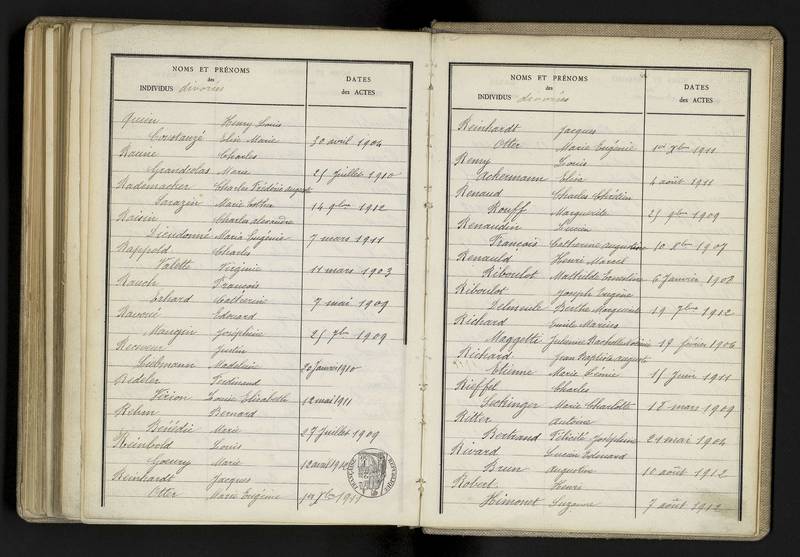 NOMS ET PRÉNOMS
des
INDIVIDUS divorcés
DATES
des ACTES
Quirin Henry Louis
Constanzé Elise Marie 30 avril 1904
Racine Charles
Grandcolas Marie 25 juillet 1910
Rademacher Charles Frédéric August
Sarazin Marie Esther 14 9bre 1912
Raisin Charles alexandre
Dieudonné Maria Eugénie 7 mars 1911
Rappold Charles
Valette Virginie 11 mars 1903
Rauch François
Erhard Catherine 7 mai 1909
Edouard
Mangin Joséphine 25 7bre 1909
Receveur Justin
Liebmann Madeleine 20 Janvier 1910
Ferdinand
Virion Louise Elisabeth 12 mai 1911
Rehm Bernard
Bénédic Marie 27 Juillet 1909
Reinbold Louis
Goeury Marie 12 avril 1910
Reinhardt Jacques
Otter Marie Eugénie 1er Xbre 1911
NOMS ET PRÉNOMS
des
INDIVIDUS divorcés
DATES
des ACTES
Reinhardt Jacques
Otter Marie Eugénie 1er Xbre 1911
Remy Louis
Ackermann Elisa 4 août 1911
Renaud Charles Chrétien
Rouff Marguerite 25 9bre 1909
Renaudin Lucien
François Catherine augustine 10 8bre 1907
Renauld Henri Marcel
Riboulot Mathilde Ernestine 6 Janvier 1908
Riboulot Joseph Eugène
Berthe Marguerite 19 7bre 1912
Richard Emile Marius
Maggetti Julienne 19 février 1906
Richard Jean Baptiste august
Etienne Marie 15 Juin 1911
Rieffel Charles
Seckinger Marie Charlotte 18 mars 1909
Ritter Antoine
Bertrand Félicité Joséphine 21 mai 1904
Rivard Lucien Edouard
Brun augustine 10 août 1912
Robert Henri
Himonet Suzanne 7 août 1912